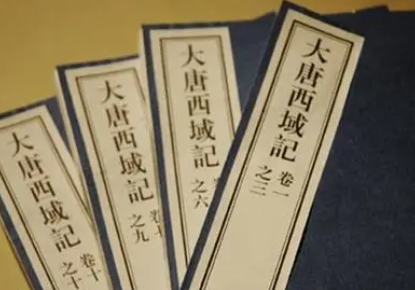 大唐西域記
卷一
之三
大唐西域記
之六
大唐西域記
卷十
之九
大唐西域記
卷十
之十